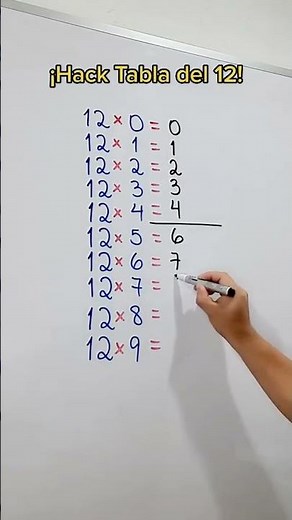 ¡Hack Tabla del 12!
12 × 0 = 0
12 × 1 = 1
12 × 2 = 2
12 × 3 = 3
12 × 4 = 4
12 × 5 = 6
12 × 6 = 7
12 × 7 =
12 × 8 =
12 × 9 =